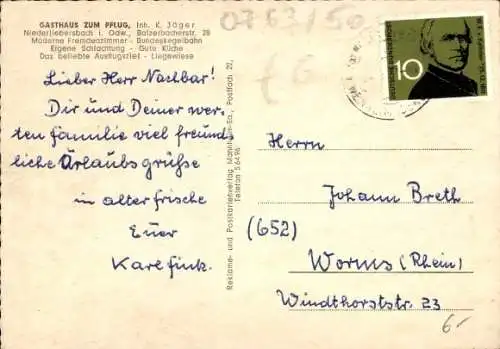 GASTHAUS ZUM PFLUG, Inh. K. Jäger
Niederliebersbach i. Odw., Balzerbacherstr. 28
Moderne Fremdenzimmer - Bundeskegelbahn
Eigene Schlachtung - Gute Küche
Das beliebte Ausflugsziel - Liegewiese
0763/50
€ G
Lieber Herr Nachbar!
Dir und Deiner wer-
ten Familie viel freund-
liche Urlaubsgrüße
in alter frische
Euer
Karl Fink.
Reklame- und Postkartenverlag Mannheim-Sa., Postfach 22,
Telefon 5 64 96
DEUTSCHE BUNDESPOST
10
Herrn
Johann Breth
(652)
Worms (Rhein)
Windthorststr. 23
6.-